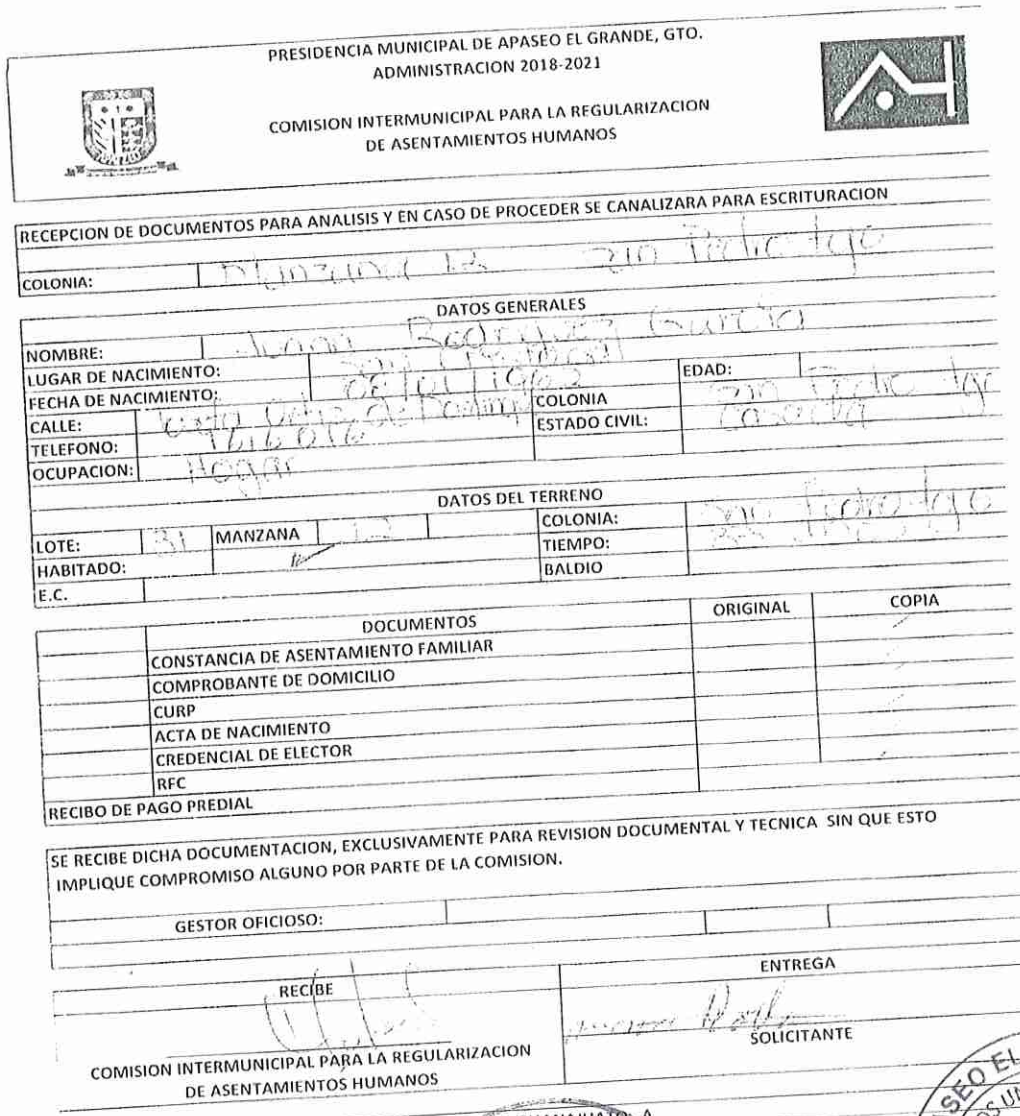 PRESIDENCIA MUNICIPAL DE APASEO EL GRANDE, GTO.
ADMINISTRACION 2018-2021
COMISION INTERMUNICIPAL PARA LA REGULARIZACION
DE ASENTAMIENTOS HUMANOS
RECEPCION DE DOCUMENTOS PARA ANALISIS Y EN CASO DE PROCEDER SE CANALIZARA PARA ESCRITURACION
COLONIA: Manzana 12 San Pedro Tgo
DATOS GENERALES
NOMBRE: Juana Rodriguez Garcia
LUGAR DE NACIMIENTO:
FECHA DE NACIMIENTO: 1962 EDAD:
CALLE: Josefa Ortiz de COLONIA San Pedro Tgo
TELEFONO: ESTADO CIVIL: Casada
OCUPACION: Hogar
DATOS DEL TERRENO
LOTE: 31 MANZANA 12 COLONIA: San Pedro Tgo
HABITADO: TIEMPO:
E.C. BALDIO
DOCUMENTOS ORIGINAL COPIA
CONSTANCIA DE ASENTAMIENTO FAMILIAR
COMPROBANTE DE DOMICILIO
CURP
ACTA DE NACIMIENTO
CREDENCIAL DE ELECTOR
RFC
RECIBO DE PAGO PREDIAL
SE RECIBE DICHA DOCUMENTACION, EXCLUSIVAMENTE PARA REVISION DOCUMENTAL Y TECNICA SIN QUE ESTO
IMPLIQUE COMPROMISO ALGUNO POR PARTE DE LA COMISION.
GESTOR OFICIOSO:
RECIBE ENTREGA
SOLICITANTE
COMISION INTERMUNICIPAL PARA LA REGULARIZACION
DE ASENTAMIENTOS HUMANOS